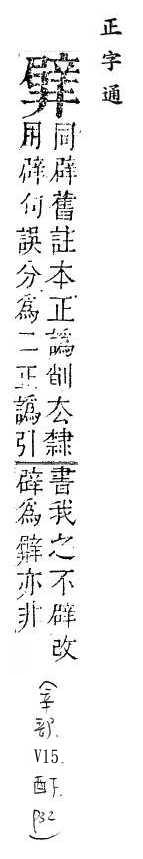 正字通
同辟舊註本正譌削厺隸書我之不辟改
用辟何誤分爲二正譌引辟爲亦非
(辛部. V15. 酉下. P32)